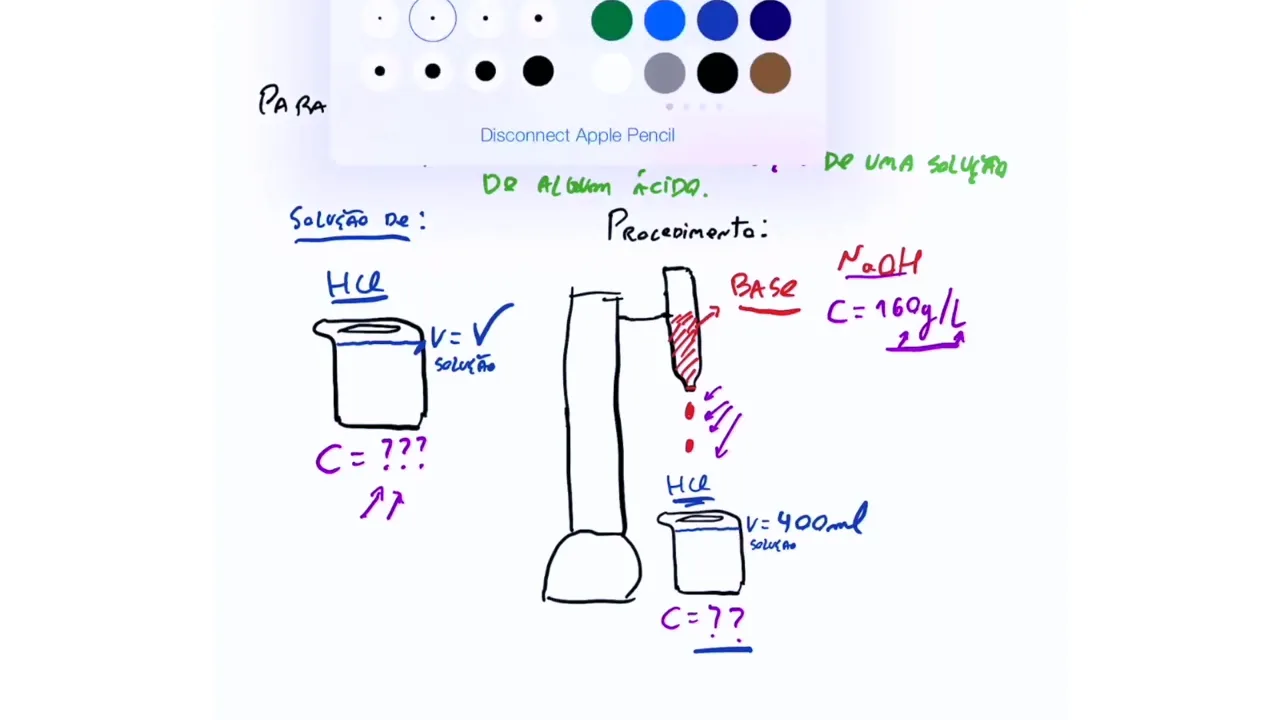 PARA
Disconnect Apple Pencil
DE UMA SOLUÇÃO
DE ALGUM ÁCIDO.
SOLUÇÃO DE:
PROCEDIMENTO:
HCl
V= ✓
SOLUÇÃO
C= ???
BASE
NaOH
C=160g/L
HCl
V=400ml
SOLUÇÃO
C=??